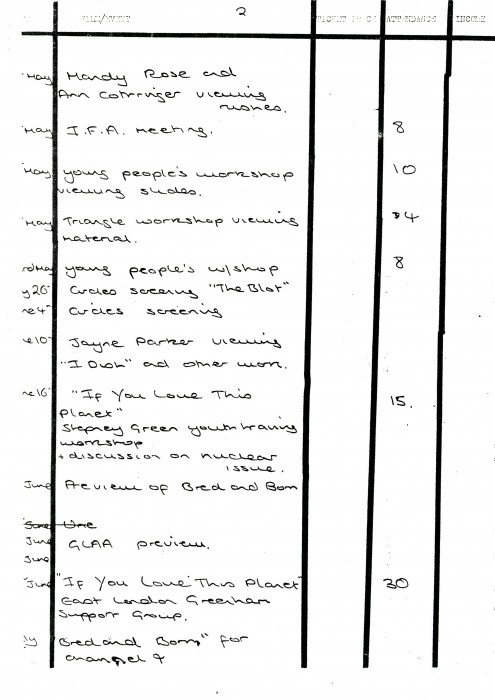 2
FILM/EVENT ATTENDANCE INCOME
May Mandy Rose and
Ann Cottringer viewing
rushes.
May I.F.A. meeting. 8
May young people's workshop 10
viewing slides.
May Triangle workshop viewing 4
material.
May young people's w/shop 8
y26 Circles screening "The Blot"
ne4 Circles screening
ne10 Jayne Parker viewing
"I Dish" and other work.
ne16 "If You Love This 15.
Planet"
Stepney Green youth training
workshop
+ discussion on nuclear
issue.
June Preview of Bred and Born
June
June GLAA preview.
June
June "If You Love This Planet" 30
East London Greenham
Support Group.
ly Bred and Born" for
channel 4